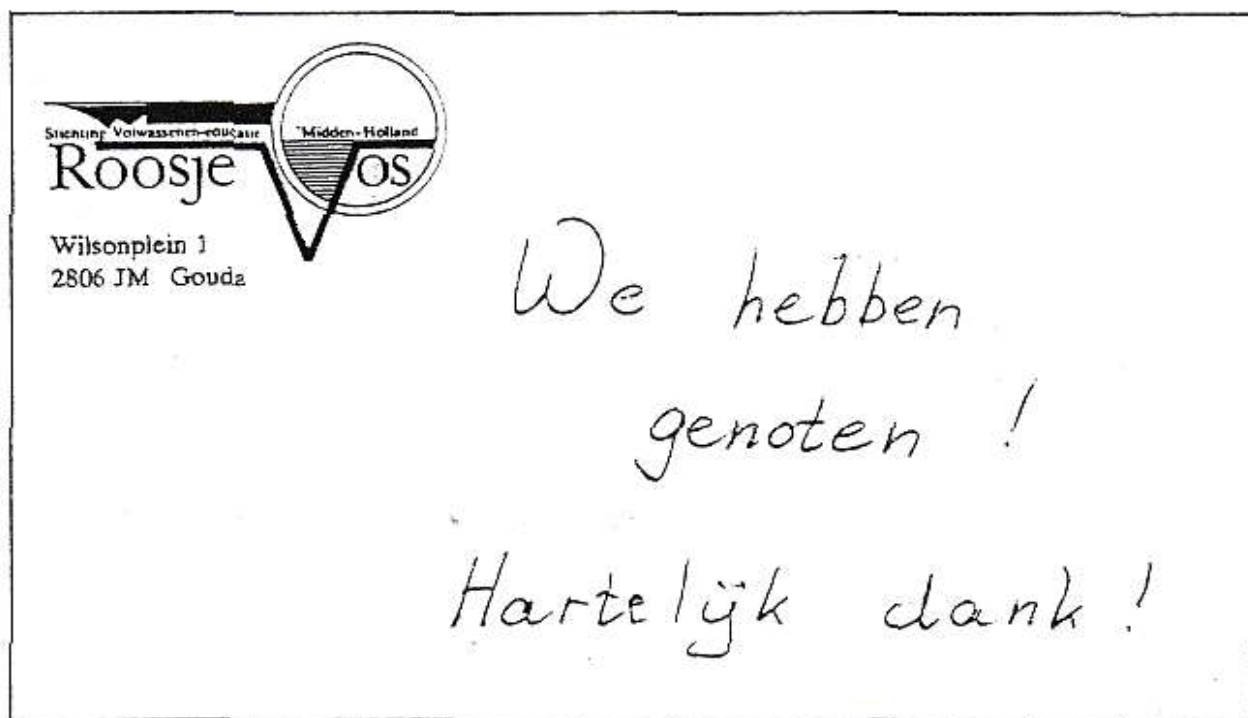 Stichting Volwassenen-educatie Midden-Holland
Roosje Vos
Wilsonplein 1
2806 JM Gouda
We hebben
genoten !
Hartelijk dank !